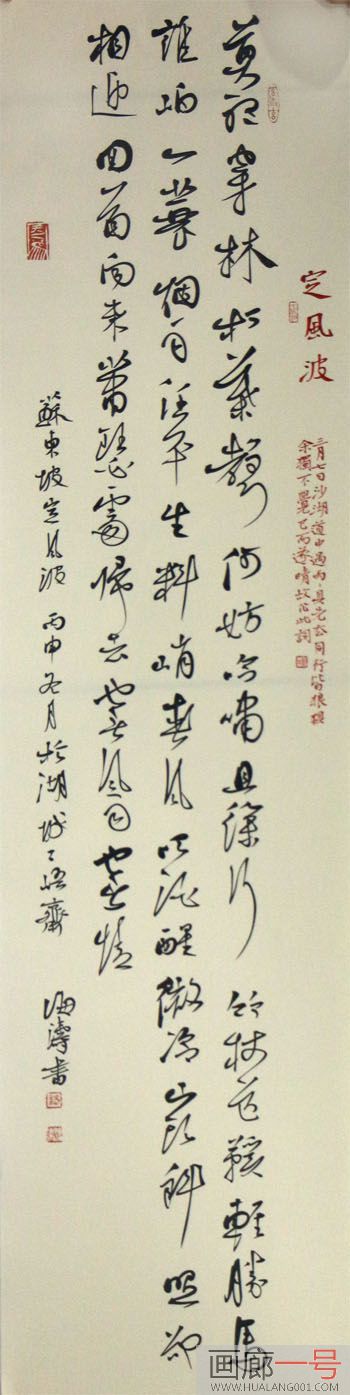 定風波
三月七日沙湖道中遇雨〻具先去同行皆狼狽
余獨不覺已而遂晴故作此詞
莫聽穿林打葉聲何妨吟嘯且徐行竹杖芒鞋輕勝馬
誰怕一蓑烟雨任平生料峭春風吹酒醒微冷山頭斜照卻
相迎回首向來蕭瑟處歸去也無風雨也無晴
蘇東坡定風波 丙申冬月於湖城 悟齋 海濤書
画廊一号
WWW.HUALANG001.COM